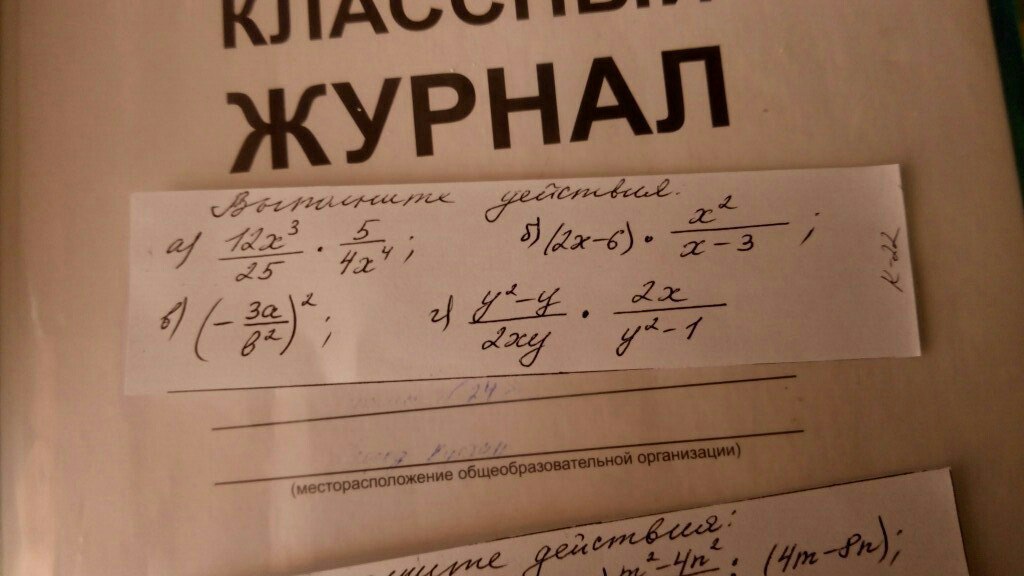 КЛАССНЫЙ
ЖУРНАЛ
Выполните действия.
а) 12x³/25 · 5/4x⁴; б) (2x-6) · x²/x-3;
в) (-3a/b²)²; г) y²-y/2xy · 2x/y²-1
К-22
(месторасположение общеобразовательной организации)
действия:
m²-4n² : (4m-8n);